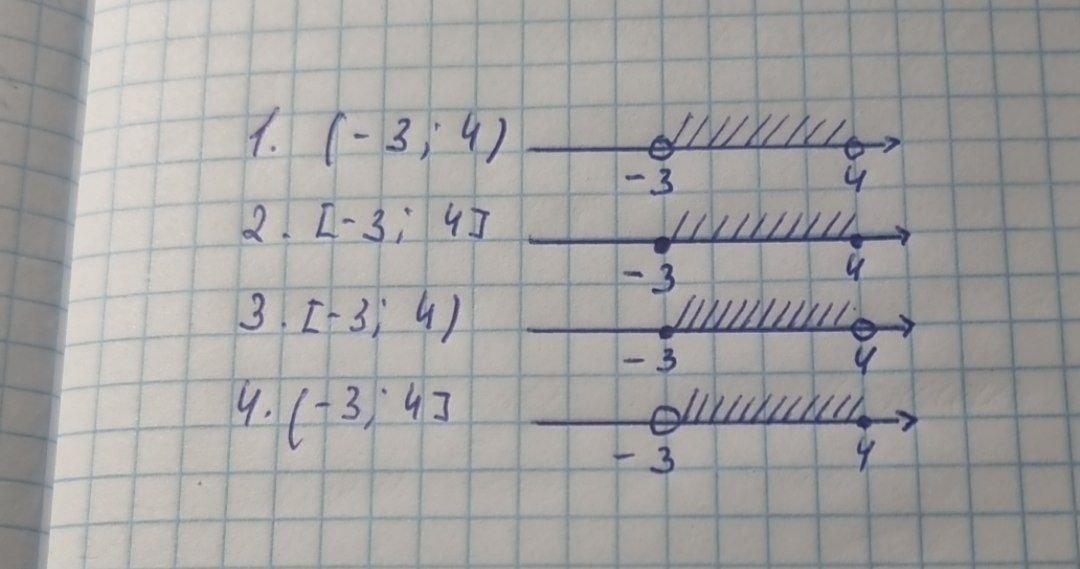 1. (-3; 4)
-3 4
2. [-3; 4]
-3 4
3. [-3; 4)
-3 4
4. (-3; 4]
-3 4